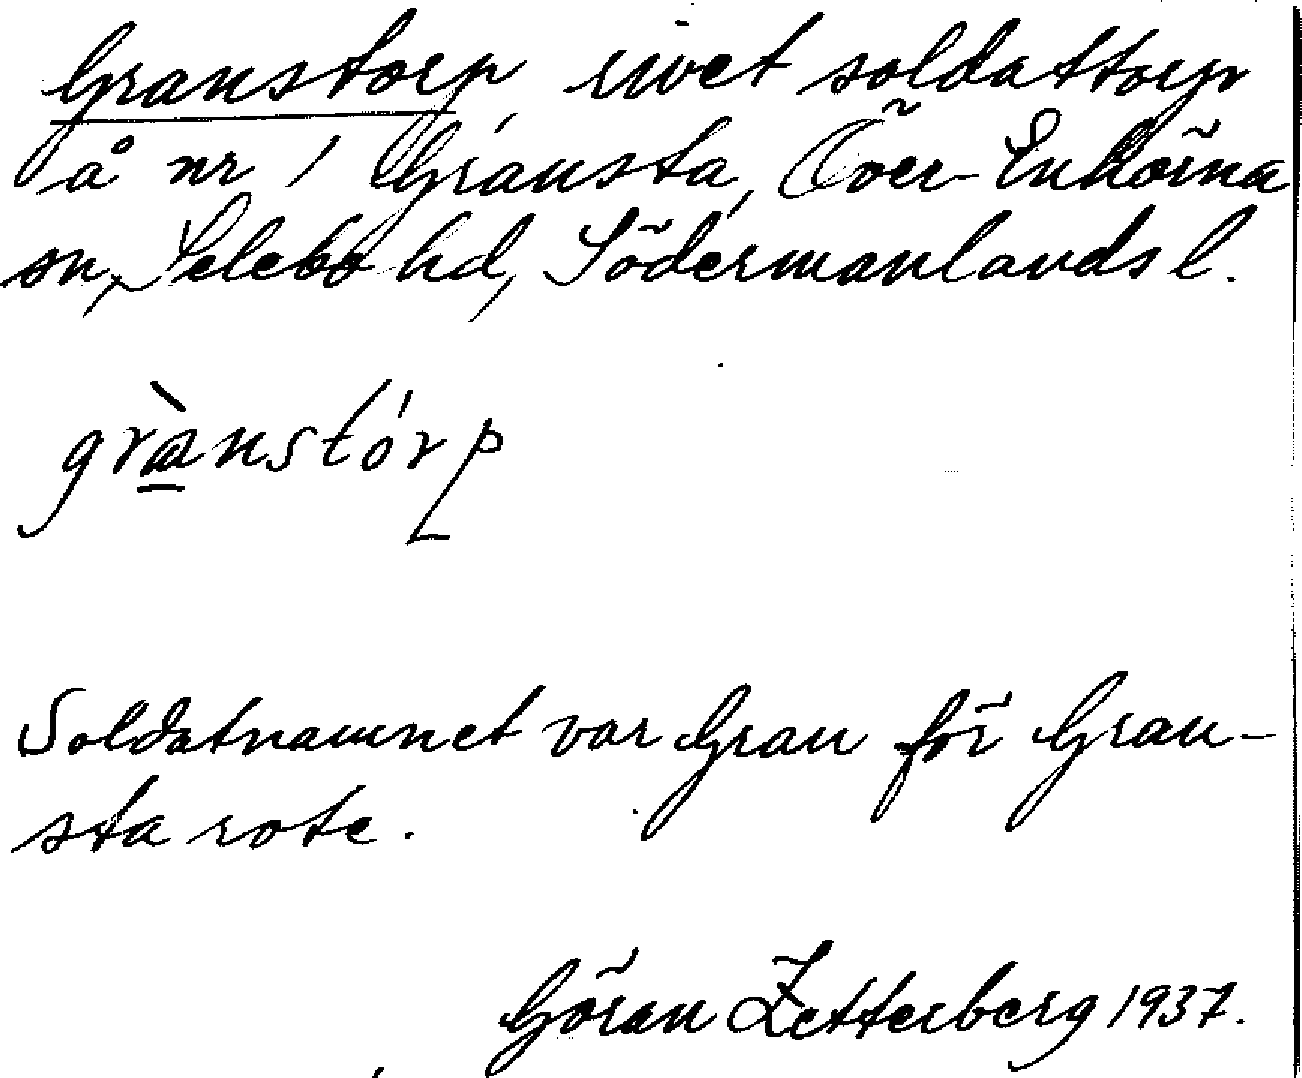 Granstorp, rivet soldattorp
å nr 1 Gransta, Över-Enhörna
sn, Selebo hd, Södermanlands l.
grànstórp
Soldatnamnet var Gran för Gran-
sta rote.
Göran Zetterberg 1937.